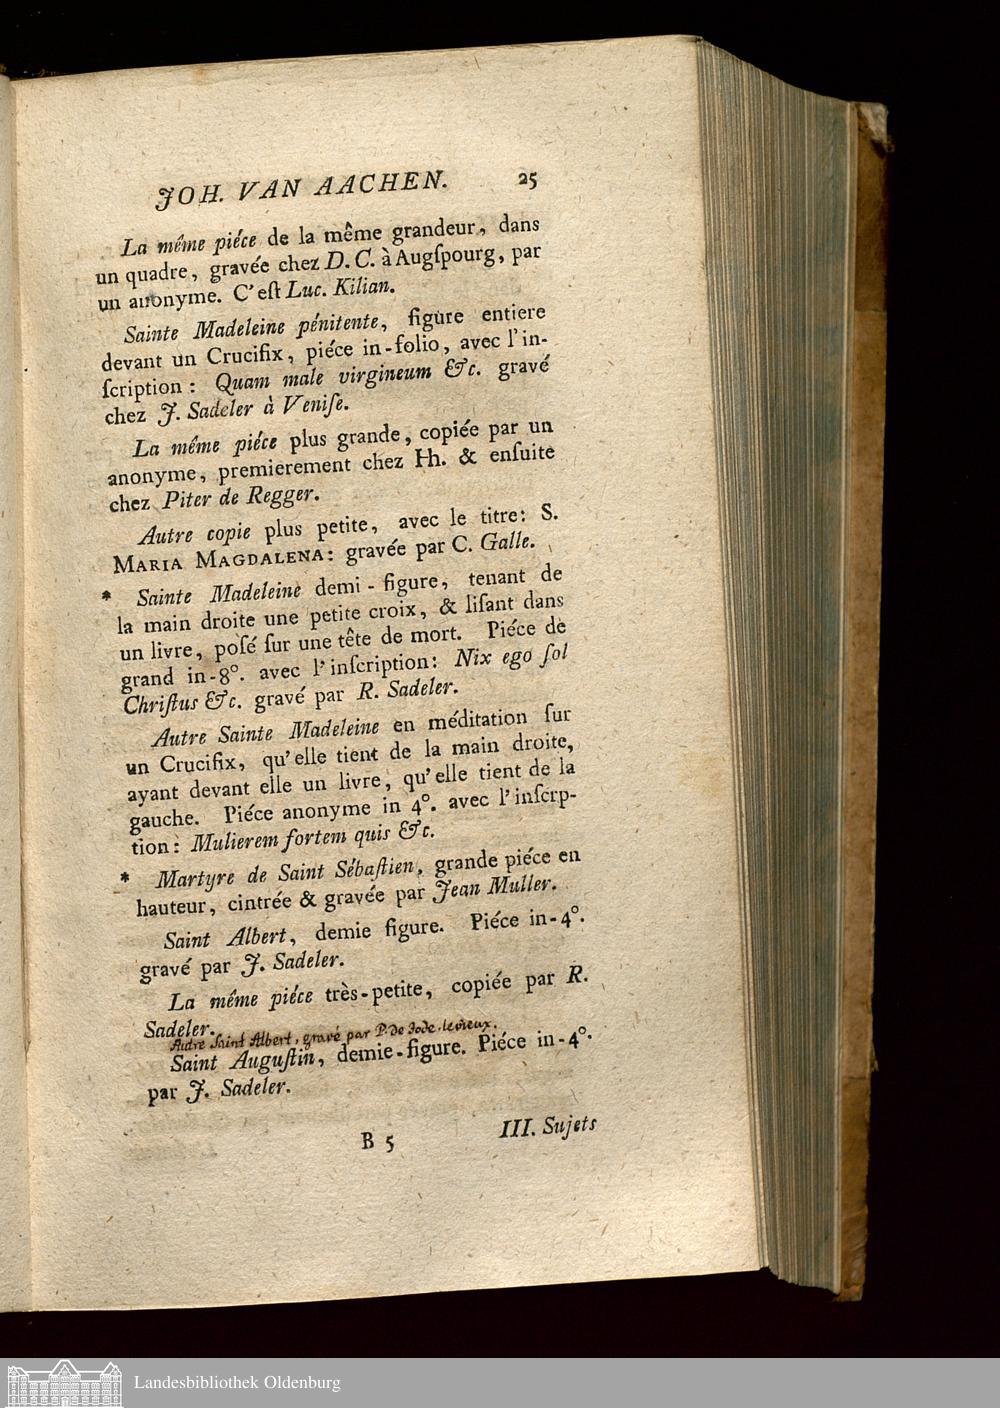 JOH. VAN AACHEN. 25
La même piéce de la même grandeur, dans
un quadre, gravée chez D. C. à Augſpourg, par
un anonyme. C'eſt Luc. Kilian.
Sainte Madeleine pénitente, figure entiere
devant un Crucifix, piéce in-folio, avec l'in-
ſcription: Quam male virgineum &c. gravé
chez J. Sadeler à Veniſe.
La même piéce plus grande, copiée par un
anonyme, premierement chez Hh. & enſuite
chez Piter de Regger.
Autre copie plus petite, avec le titre: S.
MARIA MAGDALENA: gravée par C. Galle.
* Sainte Madeleine demi-figure, tenant de
la main droite une petite croix, & liſant dans
un livre, poſé ſur une tête de mort. Piéce de
grand in-8°. avec l'inſcription: Nix ego ſol
Chriſtus &c. gravé par R. Sadeler.
Autre Sainte Madeleine en méditation ſur
un Crucifix, qu'elle tient de la main droite,
ayant devant elle un livre, qu'elle tient de la
gauche. Piéce anonyme in 4°. avec l'inſcrp-
tion: Mulierem fortem quis &c.
* Martyre de Saint Sébaſtien, grande piéce en
hauteur, cintrée & gravée par Jean Muller.
Saint Albert, demie figure. Piéce in-4°.
gravé par J. Sadeler.
La même piéce très-petite, copiée par R.
Sadeler.
Autre Saint Albert, gravé par P. de Jode. le vieux.
Saint Auguſtin, demie-figure. Piéce in-4°.
par J. Sadeler.
B 5 III. Sujets
Landesbibliothek Oldenburg